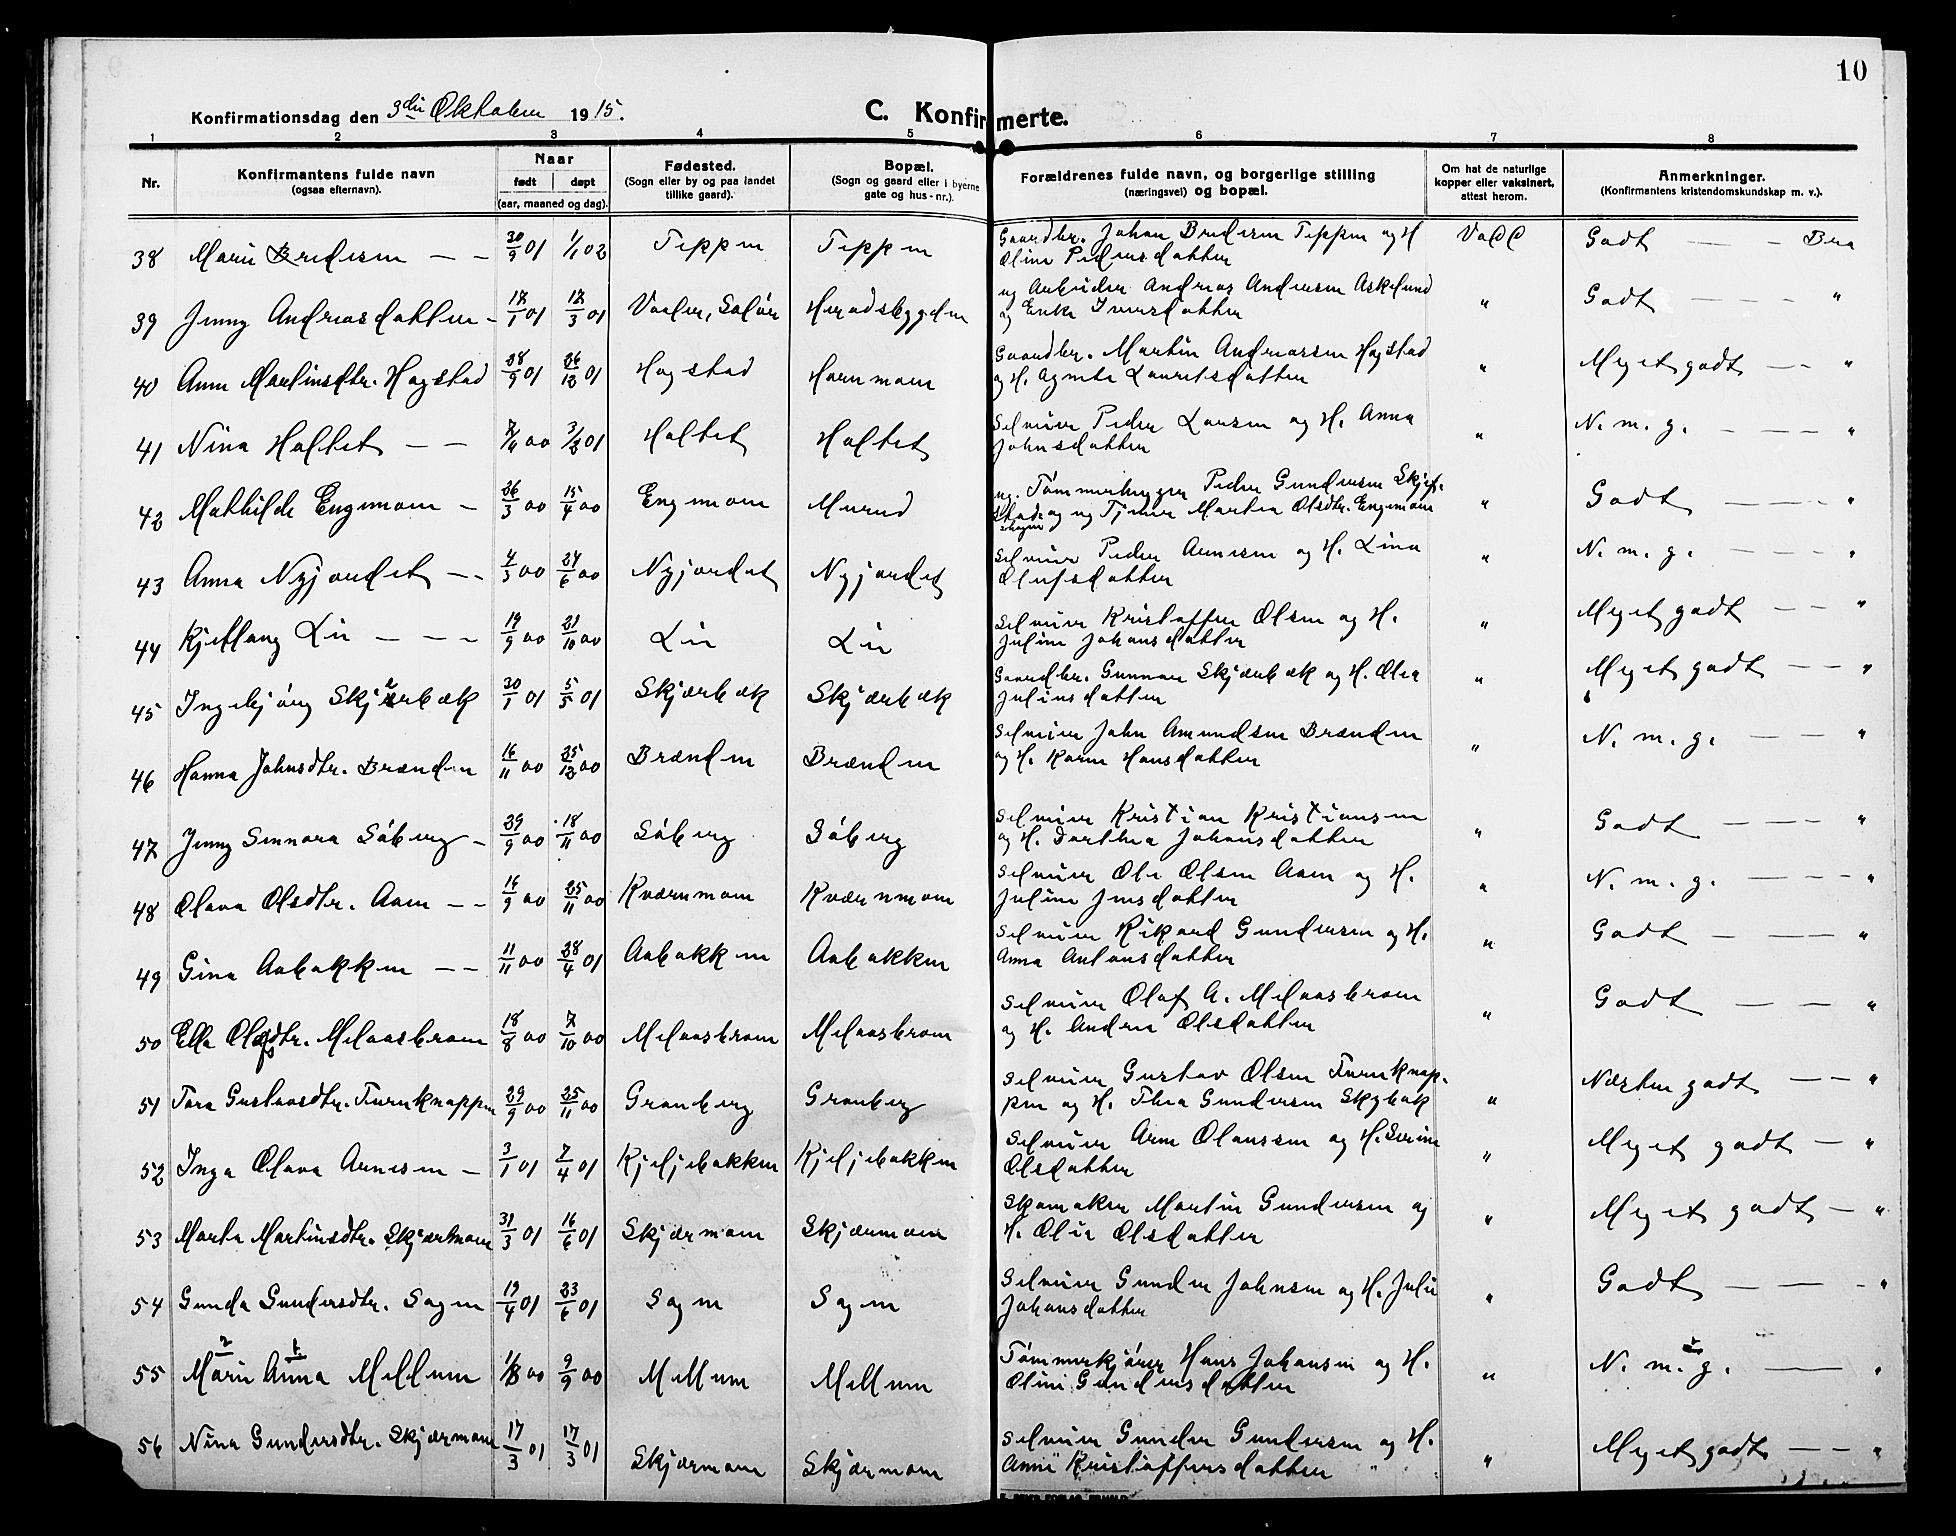 10
Konfirmationsdag den 3die Oktober 1915.
C. Konfirmerte.
1 2 3 4 5 6 7 8
Nr.
Konfirmantens fulde navn
(ogsaa efternavn).
Naar
født | døpt
(aar, maaned og dag).
Fødested.
(Sogn eller by og paa landet
tillike gaard).
Bopæl.
(Sogn og gaard eller i byerne
gate og hus-nr.).
Forældrenes fulde navn, og borgerlige stilling
(næringsvei) og bopæl.
Om hat de naturlige
kopper eller vaksinert,
attest herom.
Anmerkninger.
(Konfirmantens kristendomskundskap m. v.).
38 Marie Bredesen — — 30/9 01 1/1 02 Teppen Teppen Gaardbr. Johan Bredesen Teppen og H. Vacc Godt — - Bra
Oline Pedersdatter
39 Jenny Andreasdatter - 17/1 01 17/3 01 Vaaler, Solør Heradsbygden ug Arbeider Andreas Andersen Askelund " Godt — - — "
og Enke Iversdatter
40 Anne Martinsdtr. Hagstad 28/9 01 26/12 01 Hagstad Hornmoen Gaardbr. Martin Andreassen Hagstad " Meget godt — - "
og H. Agnete Lauritsdatter
41 Nina Holtet — — 7/4 00 3/2 01 Holtet Holtet Selveier Peder Larsen og H. Anna " N. m. g. - — - "
Johnsdatter
42 Mathilde Engemoen - 26/3 00 15/4 00 Engemoen Murud ug. Tømmerhugger Peder Gundersen Skjef- " Godt — — - "
stadskogen og ug Tjener Martea Olsdtr. Engemoen
43 Anna Nyjordet — - 4/3 00 24/6 00 Nyjordet Nyjordet Selveier Peder Arnesen og H. Lina " N. m. g. — — - "
Olufsdatter
44 Kjellaug Lie — — - 19/9 00 21/10 00 Lie Lie Selveier Kristoffer Olsen og H. " Meget godt — - "
Juline Johansdatter
45 Ingebjørg Skjærbæk 30/1 01 5/5 01 Skjærbæk Skjærbæk Gaardbr. Gunnar Skjærbæk og H. Olea " Meget godt — - "
Juliusdatter
46 Hanna Johnsdtr. Brænden 16/11 00 25/12 00 Brænden Brænden Selveier John Amundsen Brænden " N. m. g. — — "
og H. Karen Hansdatter
47 Jenny Sennora Søberg - 29/9 00 18/11 00 Søberg Søberg Selveier Kristian Kristiansen " Godt — — - "
og H. Dorthea Johansdatter
48 Olava Olsdtr. Aaen — - 16/9 00 25/11 00 Kværnmoen Kværnmoen Selveier Ole Olsen Aaen og H. " N. m. g. — — - "
Juline Jensdatter
49 Gina Aabakken — — 11/11 00 28/4 01 Aabakken Aabakken Selveier Rikard Gundersen og H. " Godt — — — "
Anna Antonsdatter
50 Ella Olafsdtr. Melaasbraaen 18/8 00 7/10 00 Melaasbraaen Melaasbraaen Selveier Olaf A. Melaasbraaen " Godt — — "
og H. Andrea Olsdatter
51 Tora Gustavsdtr. Furuknappen 29/9 00 25/11 00 Granberg Granberg Selveier Gustav Olsen Furuknap- " Næsten godt — - "
pen og H. Thea Gundersen Skybak
52 Inga Olava Arnesen — 3/1 01 7/4 01 Kjeljebakken Kjeljebakken Selveier Arne Olaussen og H. Serine " Meget godt — "
Olsdatter
53 Marta Martinsdtr. Skjærmoen 31/3 01 16/6 01 Skjærmoen Skjærmoen Skomaker Martin Gundersen og " Meget godt — "
H. Olia Olsdatter
54 Gunda Gundersdtr. Sagen 19/4 01 23/6 01 Sagen Sagen Selveier Gunder Johnsen og H. Julie " Godt — — - "
Johansdatter
2 1.
55 Marie Anna Mellum 1/8 00 9/9 00 Mellum Mellum Tømmerkjører Hans Johansen og H. " N. m. g. — — "
Oline Gundersdatter
56 Nina Gundersdtr. Skjærmoen 17/3 01 17/3 01 Skjærmoen Skjærmoen Selveier Gunder Gundersen og H. " Meget godt — - "
Anne Kristoffersdatter